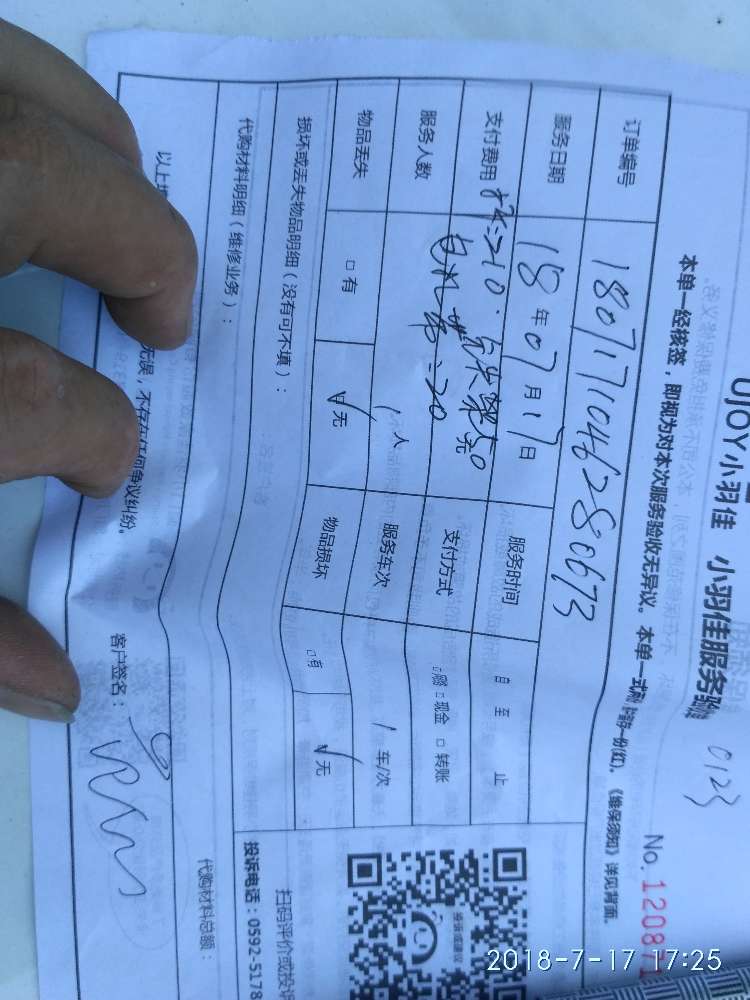 UJOY小羽佳 小羽佳服务验
0123
No. 120871
本单一经核签，即视为对本次服务验收无异议。本单一式两
《维保须知》详见背面。
订单编号 1807171046280673
服务日期 18年07月17日 服务时间 日 至 止
支付费用 210. 50 支付方式 □ □现金 □转账
=20
服务人数 1人 服务车次 1车/次
物品丢失 □有 √无 物品损坏 □有 √无
损坏或丢失物品明细（没有可不填）：
代购材料明细（维修业务）：
代购材料总额：
以上 无误，不存在任何争议纠纷。
客户签名：
投诉建议
扫码评价或投诉
投诉电话：0592-5178
2018-7-17 17:25